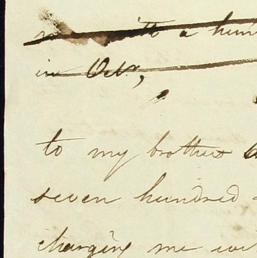 with a hun
in Oct,
to my brother
seven hundred
charging me